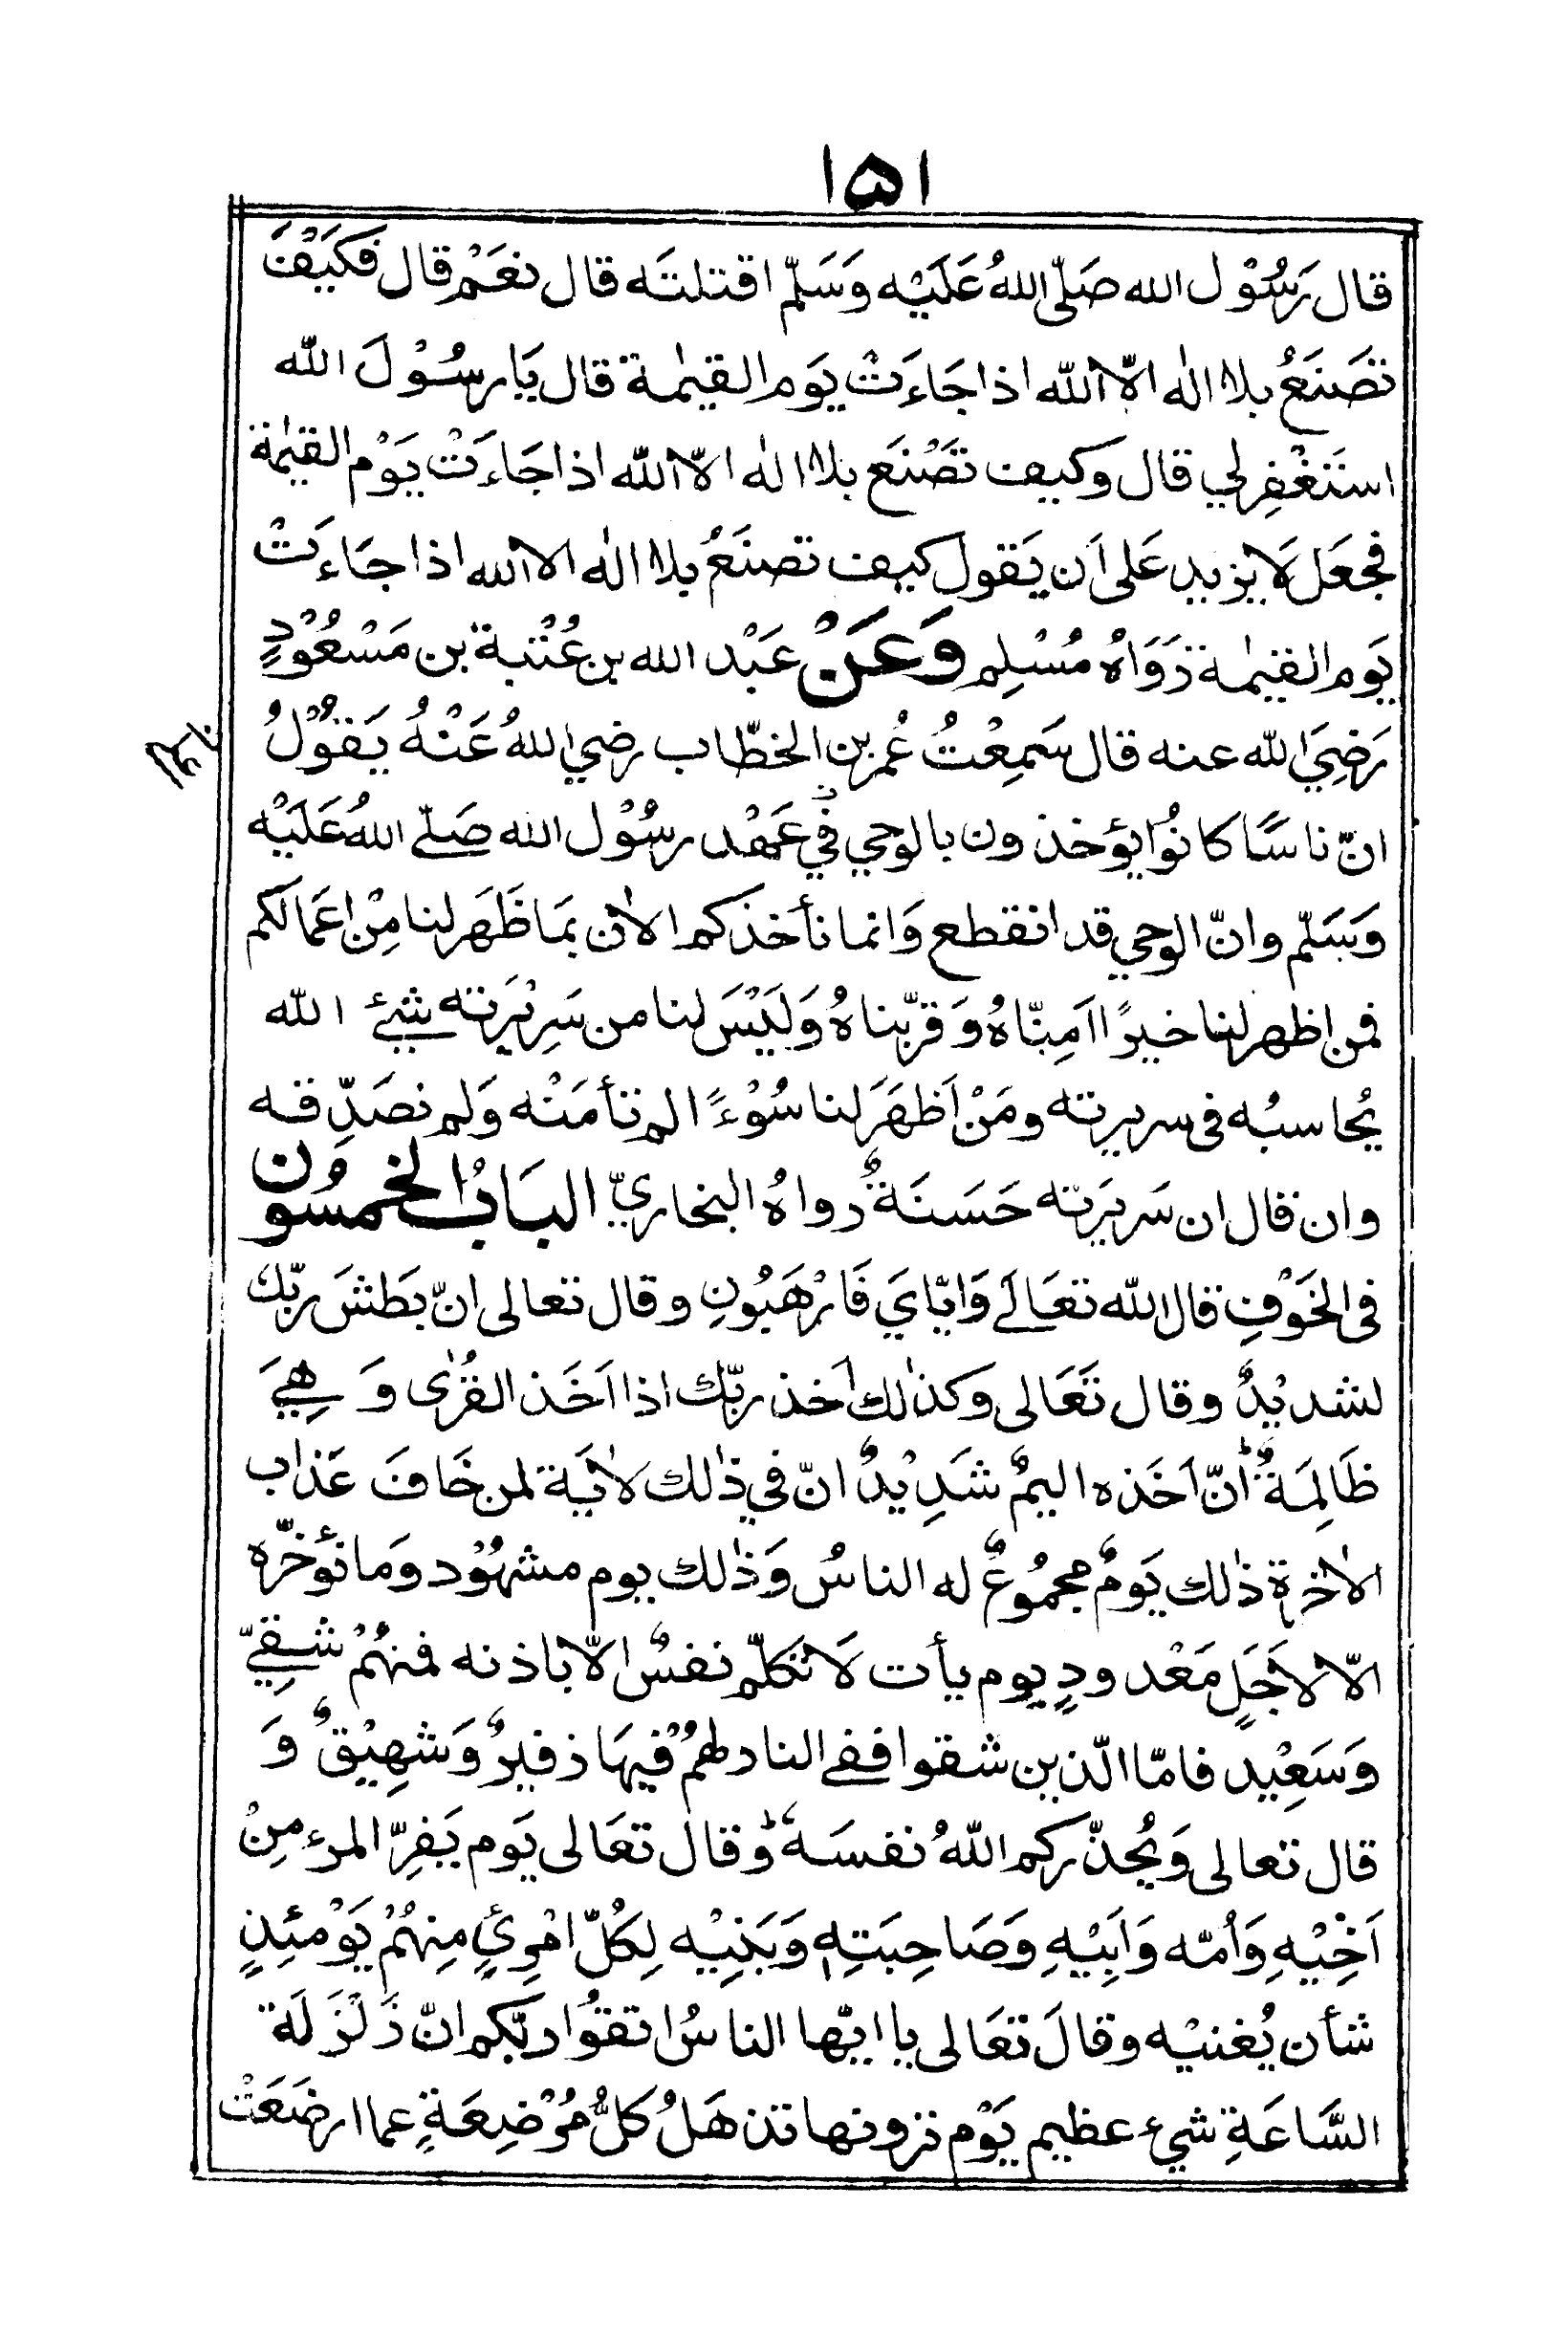 ١۵١
قال رَسُوْل الله صَلّى اللهُ عَلَيْه وَسَلّم اقتلتَه قال نعَمْ قال فكَيْفَ
تصَنَعُ بلا الٰه الّا اللّٰه اذا جَاءَتْ يَوم القيٰمة قال يَا رسُوْلَ اللّٰه
استَغْفِر لي قال وكيف تصْنَع بلا الٰه الّا اللّٰه اذا جَاءَتْ يَوْم القيٰمة
فجعَل لَا يزيد عَلى اَن يَقول كيف تصنَعُ بلا الٰه الا الله اذا جَاءَتْ
يَوم القيٰمة رَوَاهُ مُسْلِم وَعَنْ عَبْد الله بن عُتْبة بن مَسْعُوْدٍ
رَضِيَ اللّٰه عنه قال سَمِعْتُ عُمر بن الخطّاب رضي اللهُ عَنْهُ يَقوْلُ
انّ ناسًا كانُوا يؤخذون بالوحي فيْ عَهْد رسُوْل الله صَلّے اللهُ عَلَيْه
وَسَلّم وانّ الوحي قد انقطع وَانما نأخذكم الاٰن بمَا ظَهَر لنا مِنْ اعمَالكم
فمن اظهر لنا خيرًا اَمِنّاهُ وَقرّبناهُ وَلَيْسَ لنا من سَرِيْرَته شيْءٌ اللّٰه
يُحاسبُه فى سريرته ومَنْ اَظهَرَ لنا سُوْءًا لم نأمَنْه وَلم نصَدّقه
وان قال ان سَريرَته حَسَنَةٌ رواهُ البخاريّ البَابُ الخمسُوْن
فى الخَوْفِ قال اللّٰه تعَالَے وَايّايَ فَارْهَبُونِ وقال تعالى انّ بَطشَ ربّك
لشديْدٌ وقال تَعَالى وكذٰلك اَخذ ربّك اذا اَخَذ القُرٰى وَهِيَ
ظَالِمَةٌ انّ اَخَذه اليمٌ شَدِيْدٌ انّ في ذٰلك لاٰيَة لمن خَافَ عَذاب
الاٰخرة ذٰلك يَومٌ مجمُوعٌ له الناسُ وَذٰلك يوم مشهُوْد وَما نؤخّره
الّا لاَجَلٍ مَعْدودٍ يوم يأت لَا تكلّم نفسٌ الّا باذنه فمنهُمْ شقِيّ
وَسَعِيْد فامّا الّذين شقوا ففے النار لهمُ فيهَا زفيرٌ وَشهِيْقٌ وَ
قال تعالى وَيُحذّركم اللّٰهُ نفسَهٗ وقال تعَالى يَوم يَفِرّ المرء مِنْ
اَخِيْهِ وَاُمّه وَاَبِيْهِ وَصَاحِبَتِهٖ وَبَنِيْه لِكُلّ امْرِئٍ مِنهُمْ يَوْمئِذٍ
شأن يُغنيْه وقالَ تعَالى يا ايّها الناسُ اتقُوا ربّكم انّ زَلْزَلَة
السَّاعَةِ شيء عظيم يَوْم ترونها تذهَلُ كلُّ مُرْضِعَةٍ عما ارضَعَتْ